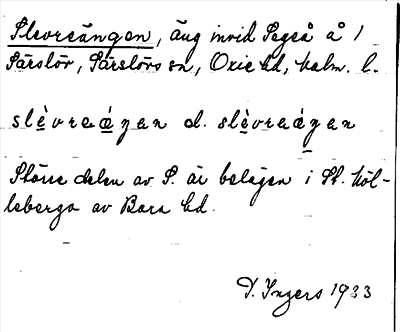 Slevreängen, äng invid Segeå å 1
Särslöv, Särslövs sn, Oxie hd, Malm. l.
slèvraǽŋan d. slèvraǽŋan
Större delen av S. är belägen i St.Köl-
leberga av Bara hd.
D. Ingers 1933